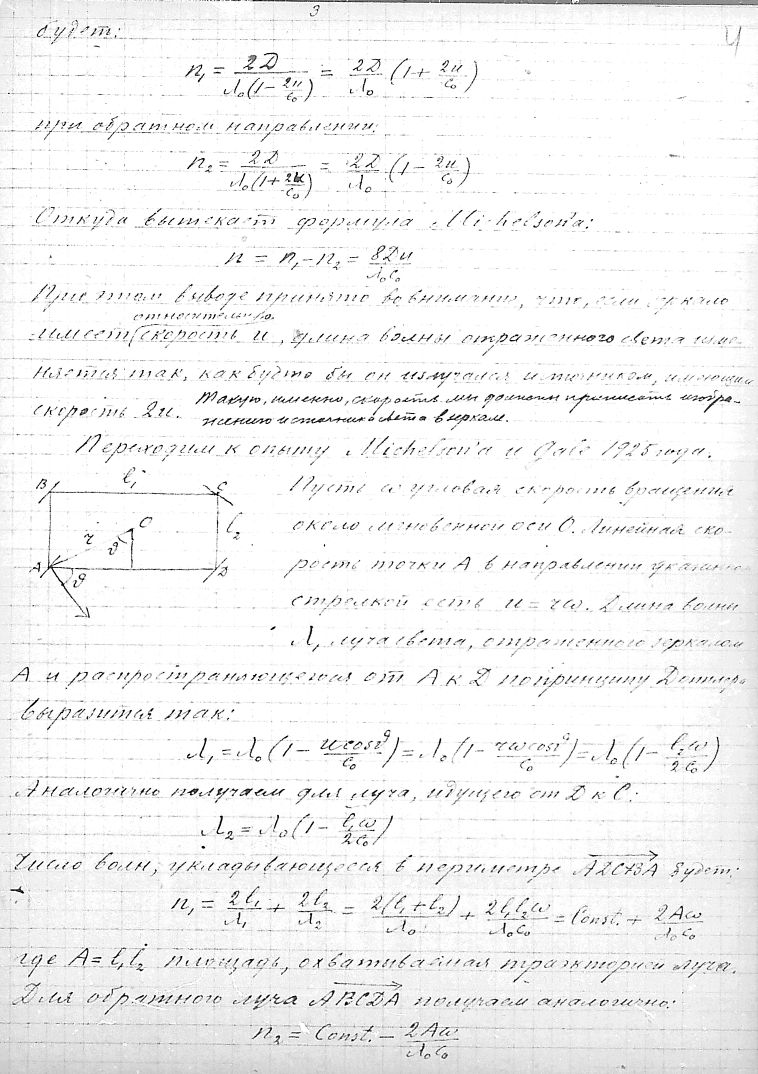 3
4
будет:
n₁ = 2D / λ₀(1 − 2u/c₀) = 2D/λ₀ (1 + 2u/c₀)
при обратном направлении:
n₂ = 2D / λ₀(1 + 2u/c₀) = 2D/λ₀ (1 − 2u/c₀)
Откуда вытекает формула Michelson'a:
n = n₁ − n₂ = 8Du / λ₀c₀
При этом выводе принято во внимание, что, если зеркало
относительно.
имеет (скорость u, длина волны отраженного света изме-
няется так, как будто бы он излучался источником, имеющим
скорость 2u. Такую, именно, скорость мы должны приписать изобра-
жению источника света в зеркале.
Переходим к опыту Michelson'a и Gale 1925 года.
B l₁ C
r O l₂
ϑ
A D
ϑ
Пусть ω угловая скорость вращения
около мгновенной оси O. Линейная ско-
рость точки A в направлении указанно
стрелкой есть u = rω. Длина волны
λ₁ луча света, отраженного зеркалом
A и распространяющегося от A к D по принципу Допплера
выразится так:
λ₁ = λ₀(1 − u cosϑ/c₀) = λ₀(1 − rω cosϑ/c₀) = λ₀(1 − l₂ω/2c₀)
Аналогично получаем для луча, идущего от D к C:
λ₂ = λ₀(1 − l₁ω/2c₀)
Число волн, укладывающееся в периметре ADCBA будет:
n₁ = 2l₁/λ₁ + 2l₂/λ₂ = 2(l₁+l₂)/λ₀ + 2l₁l₂ω/λ₀c₀ = Const. + 2Aω/λ₀c₀
где A = l₁l₂ площадь, охватываемая траекторией луча.
Для обратного луча ABCDA получаем аналогично:
n₂ = Const. − 2Aω/λ₀c₀